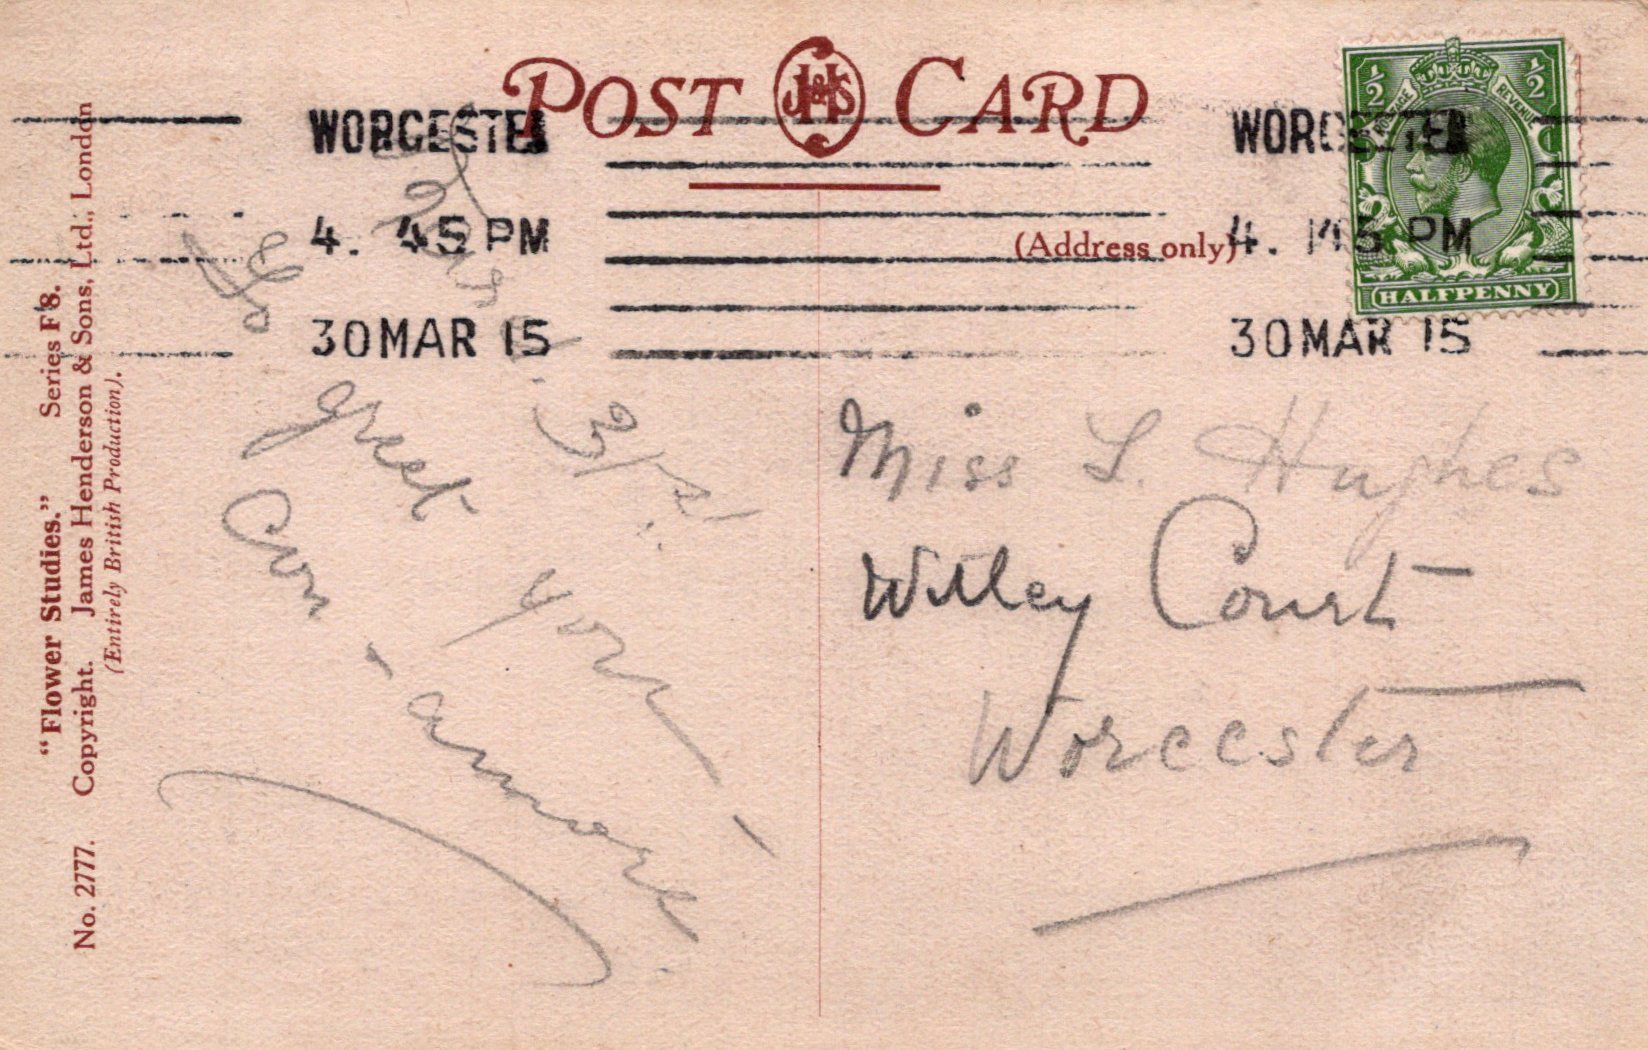 POST J.H&S CARD
WORCESTER
4. 45 PM
30 MAR 15
WORCESTER
4. 45 PM
30 MAR 15
½ ½
POSTAGE REVENUE
HALFPENNY
(Address only)
"Flower Studies." Series F8.
No. 2777. Copyright. James Henderson & Sons, Ltd., London
(Entirely British Production).
To
greet you -
Con - amore.
Miss L. Hughes
Witley Court
Worcester